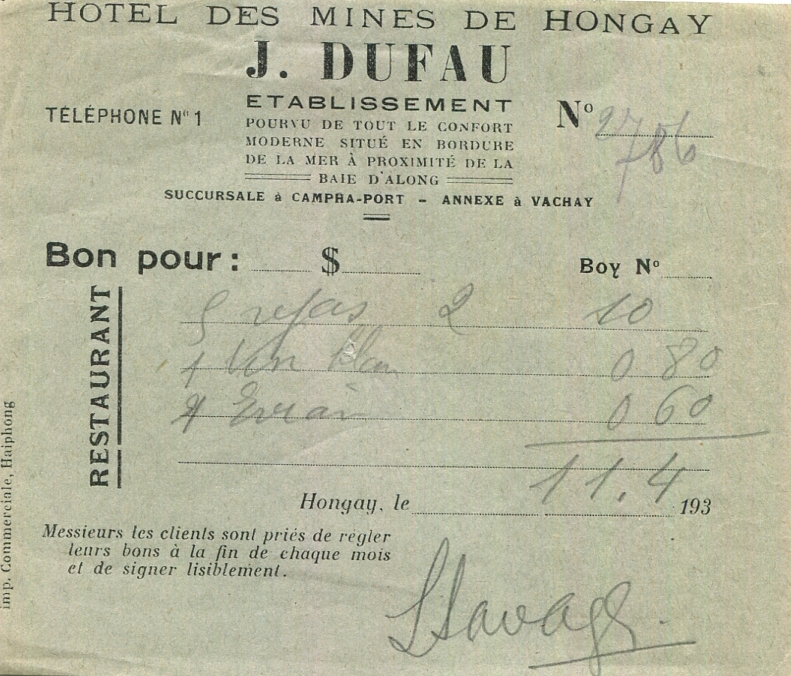 HOTEL DES MINES DE HONGAY
J. DUFAU
TÉLÉPHONE N° 1
ETABLISSEMENT
POURVU DE TOUT LE CONFORT
MODERNE SITUÉ EN BORDURE
DE LA MER À PROXIMITÉ DE LA
BAIE D'ALONG
N° 786
SUCCURSALE à CAMPHA-PORT - ANNEXE à VACHAY
Bon pour : $ Boy N°
RESTAURANT
5 repas 2 10
1 Vin blan 0 80
4 Evian 0 60
11.4
Hongay, le 193
Messieurs les clients sont priés de régler
leurs bons à la fin de chaque mois
et de signer lisiblement.
imp. Commerciale, Haiphong